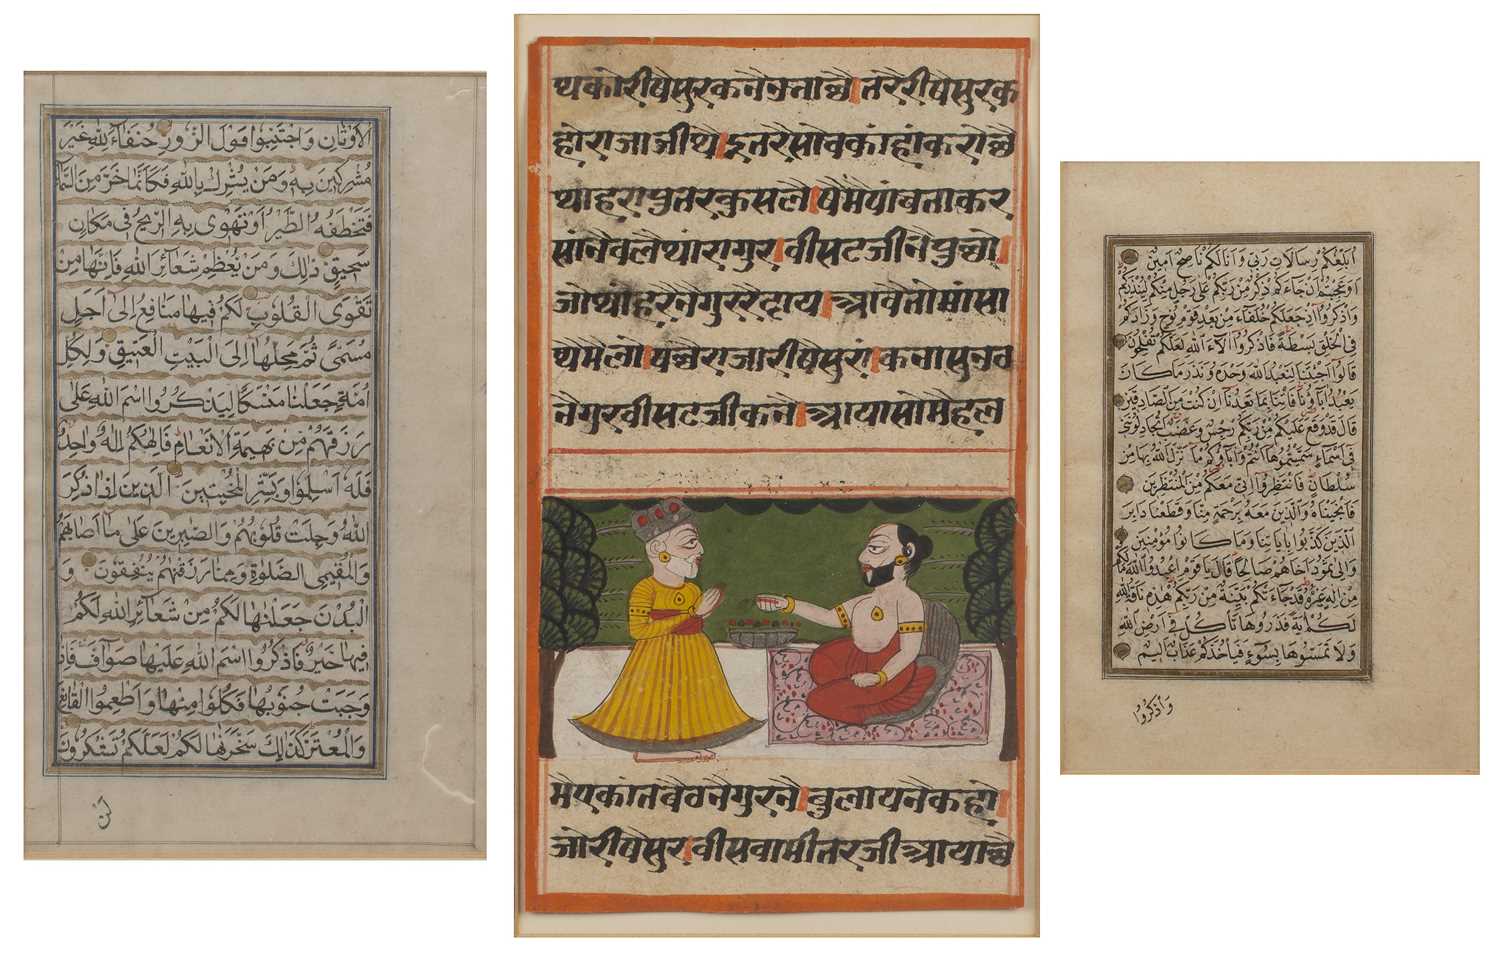 الاوثان واجتنبوا قول الزور حنفاء لله غير
مشركين به ومن يشرك بالله فكانما خر من السما
فتخطفه الطير او تهوى به الريح فى مكان
سحيق ذلك ومن يعظم شعائر الله فانها من
تقوى القلوب لكم فيها منافع الى اجل
مسمى ثم محلها الى البيت العتيق ولكل
امة جعلنا منسكا ليذكروا اسم الله على
رزقهم من بهيمة الانعام فالهكم اله واحد
فله اسلموا وبشر المخبتين الذين اذا ذكر
الله وجلت قلوبهم والصبرين على ما اصابهم
والمقيمى الصلوة ومما رزقنهم ينفقون و
البدن جعلنها لكم من شعائر الله لكم
فيها خير فاذكروا اسم الله عليها صواف فاذا
وجبت جنوبها فكلوا منها واطعموا القانع
والمعتر كذلك سخرنها لكم لعلكم تشكرون
لن
थकोरीषेसुरकनैनताछै।तरैरीषेसुरक
होराजाजीथे।दूतरैसोवकांहांकरोछै
थाहरापुतरकुसलै।षेमषांबताकर
सांनैवलैथारागुर।वीसटजीनैपुछो।
जोथांहरैनैगुररैदाय।आवैतोमांसा
थेमेलो।पछैराजारीषेसुरां।कनासुनव
नैगुरवीसटजीकनै।आयासोमेहल
मैएकांतबैवनैगुरनै।बुलायनैकहो।
जोरीषेसुर।वीसवामीतरजीआयाछै
ابلغكم رسالات ربي وانا لكم ناصح امين
اوعجبتم ان جاءكم ذكر من ربكم على رجل منكم لينذركم
واذكروا اذ جعلكم خلفاء من بعد قوم نوح وزادكم
في الخلق بسطة فاذكروا الاء الله لعلكم تفلحون
قالوا اجئتنا لنعبد الله وحده ونذر ما كان
يعبد اباؤنا فاتنا بما تعدنا ان كنت من الصادقين
قال قد وقع عليكم من ربكم رجس وغضب اتجادلونني
في اسماء سميتموها انتم واباؤكم ما نزل الله بها من
سلطان فانتظروا اني معكم من المنتظرين
فانجيناه والذين معه برحمة منا وقطعنا دابر
الذين كذبوا باياتنا وما كانوا مومنين
والى ثمود اخاهم صالحا قال يا قوم اعبدوا الله ما لكم
من اله غيره قد جاءتكم بينة من ربكم هذه ناقة الله
لكم اية فذروها تاكل في ارض الله
ولا تمسوها بسوء فياخذكم عذاب اليم
واذكروا